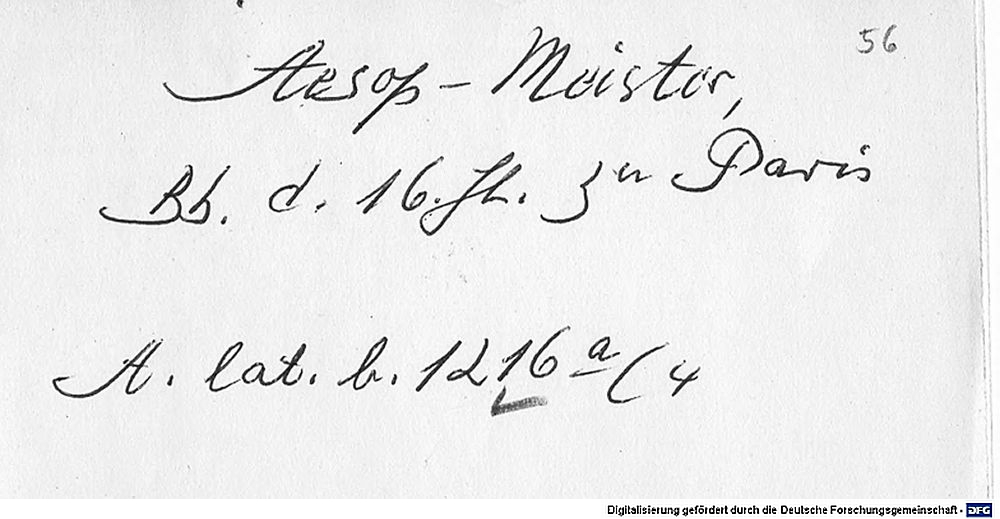 56
Aesop-Meister,
Bb. d. 16. Jh. zu Paris
A. lat. b. 1216 a (4
Digitalisierung gefördert durch die Deutsche Forschungsgemeinschaft - DFG